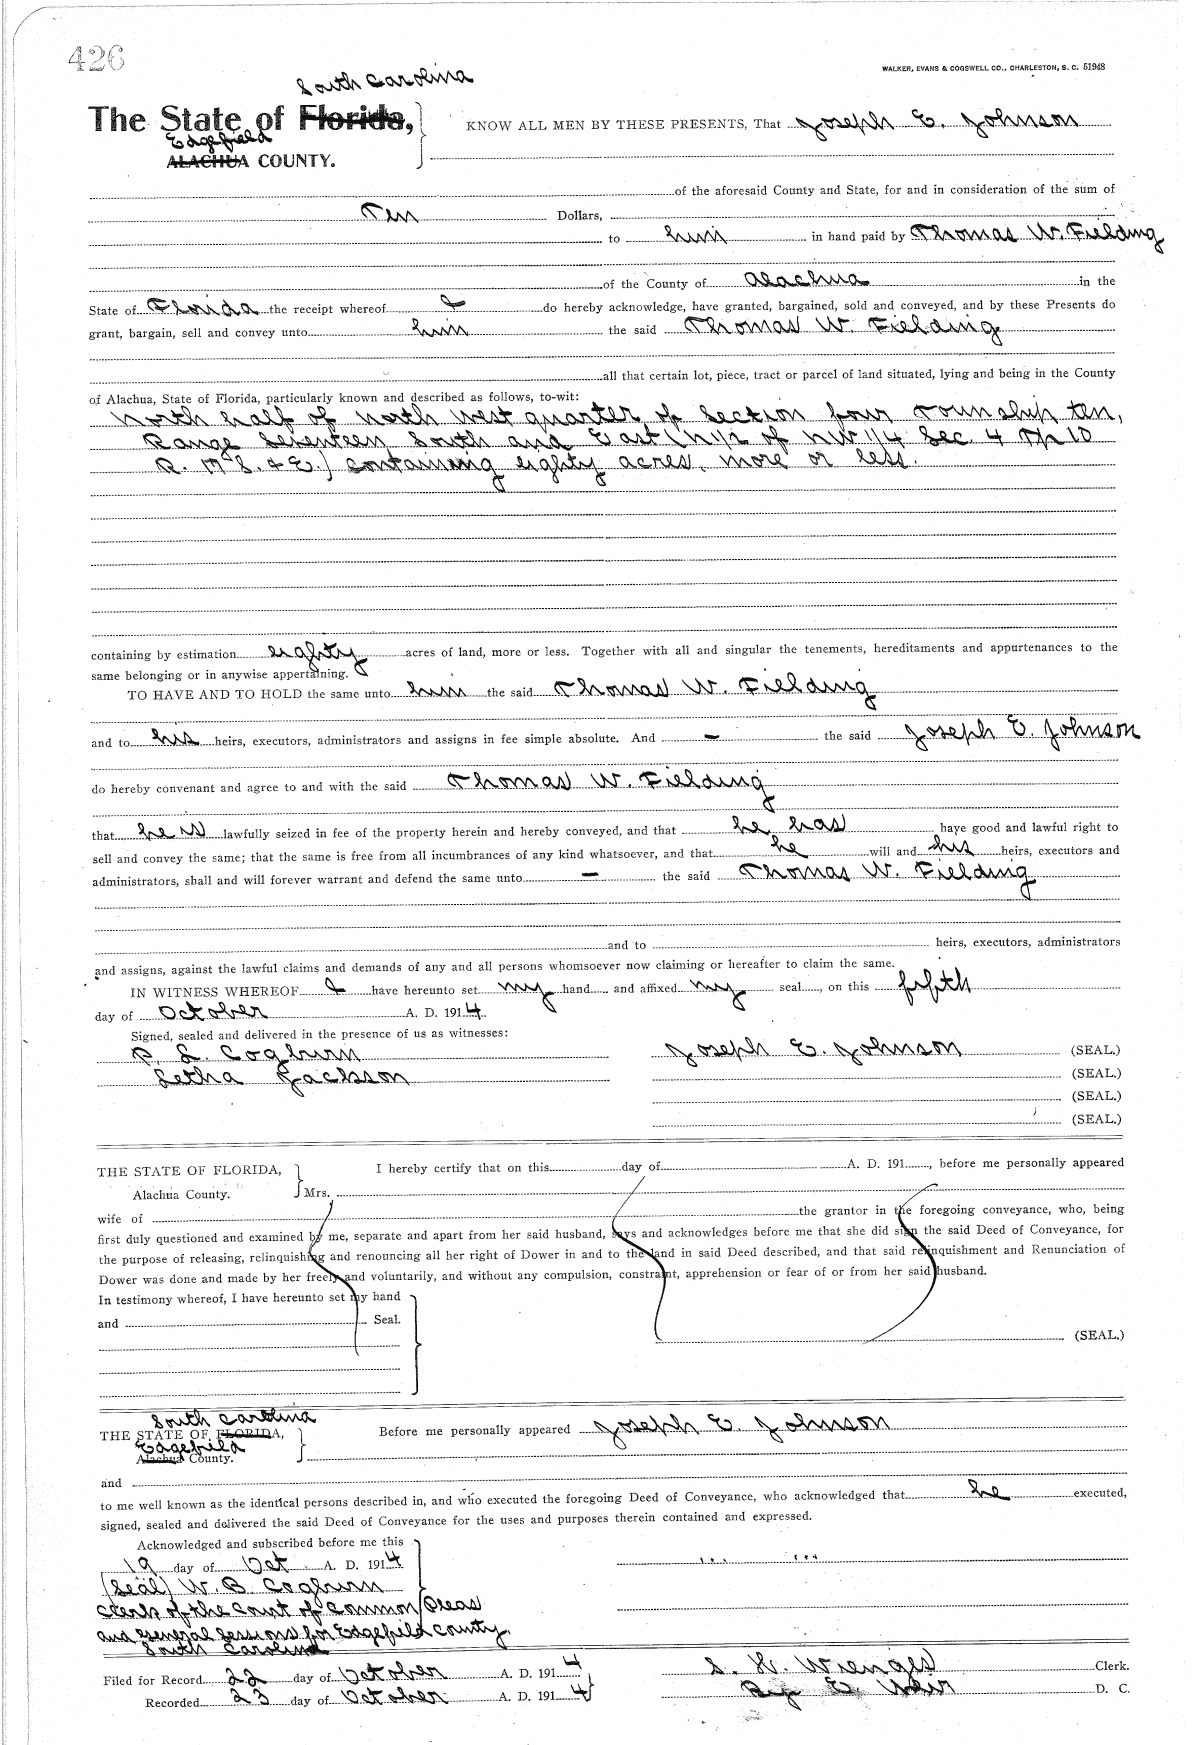 426
WALKER, EVANS & COGSWELL CO., CHARLESTON, S. C. 51948
South Carolina
The State of Florida, KNOW ALL MEN BY THESE PRESENTS, That Joseph E. Johnson
Edgefield
ALACHUA COUNTY.
of the aforesaid County and State, for and in consideration of the sum of
Ten Dollars,
to him in hand paid by Thomas W. Fielding
of the County of Alachua in the
State of Florida the receipt whereof I do hereby acknowledge, have granted, bargained, sold and conveyed, and by these Presents do
grant, bargain, sell and convey unto him the said Thomas W. Fielding
all that certain lot, piece, tract or parcel of land situated, lying and being in the County
of Alachua, State of Florida, particularly known and described as follows, to-wit:
North half of north west quarter of Section four Township ten,
Range Seventeen South and East (N1/2 of NW 1/4 Sec. 4 Tp 10
R. 17 S. & E.) containing eighty acres, more or less.
containing by estimation eighty acres of land, more or less. Together with all and singular the tenements, hereditaments and appurtenances to the
same belonging or in anywise appertaining.
TO HAVE AND TO HOLD the same unto him the said Thomas W. Fielding
and to his heirs, executors, administrators and assigns in fee simple absolute. And - the said Joseph E. Johnson
do hereby convenant and agree to and with the said Thomas W. Fielding
that he is lawfully seized in fee of the property herein and hereby conveyed, and that he has have good and lawful right to
sell and convey the same; that the same is free from all incumbrances of any kind whatsoever, and that he will and his heirs, executors and
administrators, shall and will forever warrant and defend the same unto - the said Thomas W. Fielding
and to heirs, executors, administrators
and assigns, against the lawful claims and demands of any and all persons whomsoever now claiming or hereafter to claim the same.
IN WITNESS WHEREOF I have hereunto set my hand and affixed my seal, on this fifth
day of October A. D. 1914.
Signed, sealed and delivered in the presence of us as witnesses:
P. L. Cogburn Joseph E. Johnson (SEAL.)
Letha Jackson (SEAL.)
(SEAL.)
(SEAL.)
THE STATE OF FLORIDA, I hereby certify that on this day of A. D. 191 , before me personally appeared
Alachua County. Mrs.
wife of the grantor in the foregoing conveyance, who, being
first duly questioned and examined by me, separate and apart from her said husband, says and acknowledges before me that she did sign the said Deed of Conveyance, for
the purpose of releasing, relinquishing and renouncing all her right of Dower in and to the land in said Deed described, and that said relinquishment and Renunciation of
Dower was done and made by her freely and voluntarily, and without any compulsion, constraint, apprehension or fear of or from her said husband.
In testimony whereof, I have hereunto set my hand
and Seal.
(SEAL.)
South Carolina
THE STATE OF FLORIDA, Before me personally appeared Joseph E. Johnson
Edgefield
Alachua County.
and
to me well known as the identical persons described in, and who executed the foregoing Deed of Conveyance, who acknowledged that he executed,
signed, sealed and delivered the said Deed of Conveyance for the uses and purposes therein contained and expressed.
Acknowledged and subscribed before me this
19 day of Oct A. D. 1914
(Seal) W. B. Cogburn
Clerk of the Court of Common Pleas
and General Sessions for Edgefield County
South Carolina
Filed for Record 22 day of October A. D. 1914 S. H. Wienges Clerk.
Recorded 23 day of October A. D. 1914 By D. C.